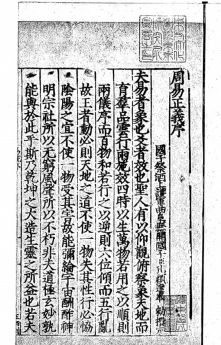 周易正義序
國子祭酒上護軍曲阜縣開國子臣孔穎達奉 勑撰
夫易者象也爻者效也聖人有以仰觀俯察象天地而
育羣品雲行雨施效四時以生萬物若用之以順則
兩儀序而百物和若行之以逆則六位傾而五行亂
故王者動必則天地之道不使一物失其性行必恊
隂陽之宜不使一物受其害故能彌綸宇宙酬酢神
明宗社所以无窮風聲所以不朽非夫道極玄妙孰
能與於此乎斯乃乾坤之大造生靈之所益也若夫